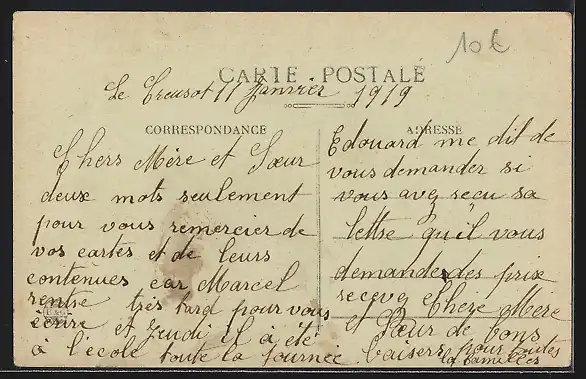 10€
CARTE POSTALE
Le Creusot 11 Janvier 1919
CORRESPONDANCE
Chers Mère et Sœur
deux mots seulement
pour vous remercier de
vos cartes et de leurs
contenues car Marcel
rentre très tard pour vous
écrire et Jeudi il à été
à l'école toute la journée
ADRESSE
Edouard me dit de
vous demander si
vous avez recu sa
lettre qu'il vous
demande des prix
recevez Chère Mère
et Sœur de bons
baisers pour toutes
la familles